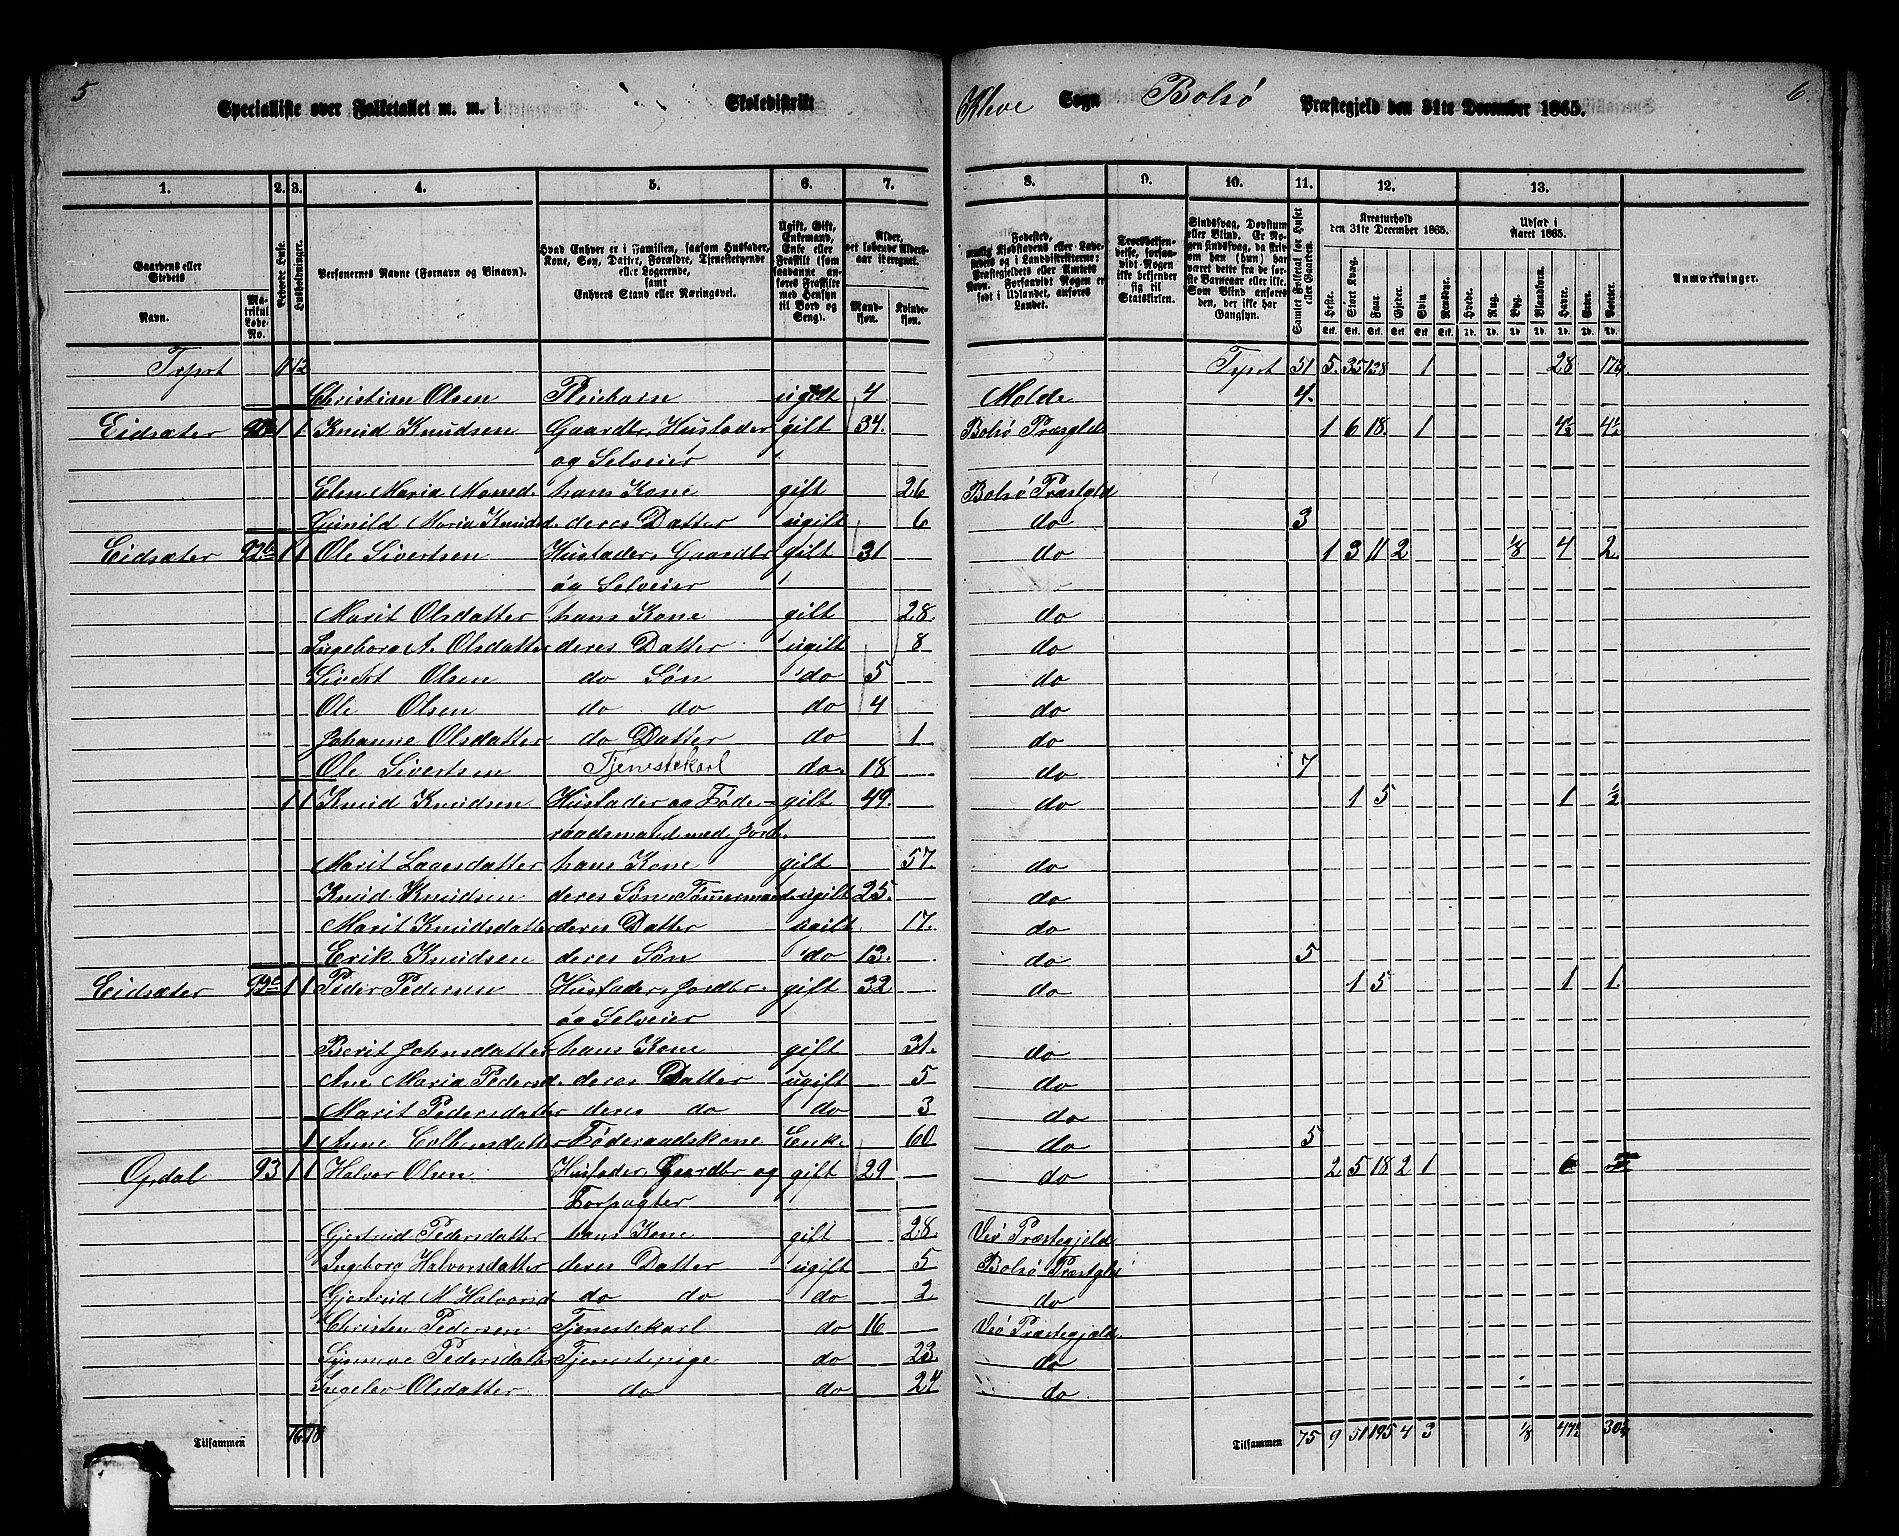 5
Specialliste over Folketallet m. m. i Skoledistrikt Kleve Sogn Bolsø Præstegjeld den 31te December 1865. 6.
1. 2. 3. 4. 5. 6. 7. 8. 9. 10. 11. 12. 13.
Gaardens eller Stedets Navn. Matrikul Løbe-No. Beboede Huse. Husholdninger. Personernes Navne (Fornavn og Binavn). Hvad Enhver er i Familien, saasom Husfader, Kone, Søn, Datter, Forældre, Tjenestetyende eller Logerende, samt Enhvers Stand eller Næringsvei. Ugift, Gift, Enkemand, Enke eller Fraskilt (som saadanne anføres Fraskilte med Hensyn til Bord og Seng). Alder, det løbende Aldersaar iberegnet. Mandkjøn. Kvindekjøn. Fødested, Trosbekjendelse, forsaavidt Nogen ikke bekjender sig til Statskirken. Sindssvag, Døvstum eller Blind. Samlet Folketal for Huset eller Gaarden. Kreaturhold den 31te December 1865. Udsæd i Aaret 1865. Anmærkninger.
Heste. Stort Kvæg. Faar. Gjeder. Svin. Rensdyr. Hvede. Rug. Byg. Blandkorn. Havre. Erter. Poteter.
Christian Olsen Pleiebarn ugift 4 Molde 4.
Eidsæter 1 1 Knud Knudsen Gaardbr. Husfader gift 34. Bolsø Præsgld 1 6 18. 1 4½ 4½
og Selveier
Elen Maria Monsd. hans Kone gift 26 Bolsø Præstgld
Gunild Maria Knudsd. deres Datter ugift 6 do 3
Eidsæter 92b 1 1 Ole Sivertsen Husfader, Gaardbr gift 31 do 1 3 11 2 ⅛ 4 2.
og Selveier
Marit Olsdatter hans Kone gift 28. do
Ingeborg A. Olsdatter deres Datter ugift 8 do
Sivert Olsen do Søn do 5 do
Ole Olsen do do do 4 do
Johanne Olsdatter do Datter do 1 do
Ole Sivertsen Tjenestekarl do. 18 do 7
1 1 Knud Knudsen Husfader og Føde- gift 49. do 1 5 1 ½
raadsmand med Jord.
Marit Lagesdatter hans Kone gift 57. do
Knud Knudsen deres Søn, Tømmermand ugift 25. do
Marit Knudsdatter deres Datter ugift 17. do
Erik Knudsen deres Søn do 13. do 5
Eidsæter 92c 1 1 Peder Pedersen Husfader, Jordbr. gift 32 do 1 5 1 1.
og Selveier
Berit Johnsdatter hans Kone gift 31. do
Ane Maria Pedersd. deres Datter ugift 5 do
Marit Pedersdatter deres do do 3 do
1 Anne Colbensdatter Føderaadskone Enk. 60 do 5
Opdal 93 1 1 Halvor Olsen Husfader, Gaardbr og gift 29 do 2 5 18 2 1 6
Forpagter
Gjertrud Pedersdatter hans Kone gift 28. Veø Præstegjeld
Ingeborg Halvorsdatter deres Datter ugift 5 Bolsø Præstgld
Gjertrud M Halvorsd do do do 2 do
Christen Pedersen Tjenestekarl do 16 Veø Præstegjeld.
Synneve Pedersdatter Tjenestepige do 23. do
Ingelev Olsdatter do do 24 do
Tilsammen Tilsammen 75 9 51 195 4 3 ⅛ 47½